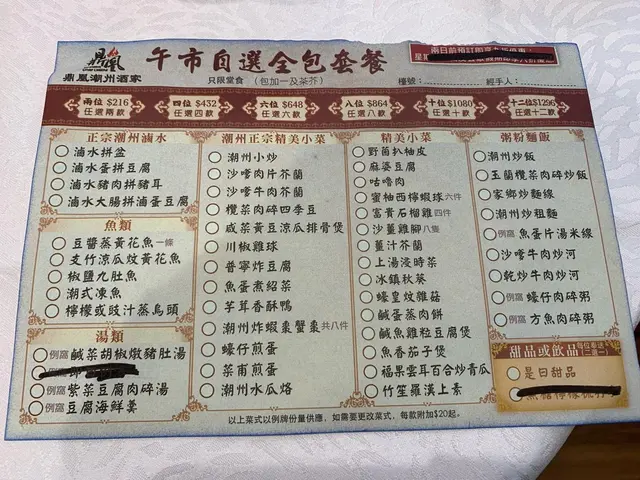 鼎凰
鼎凰潮州酒家
午市自選全包套餐
只限堂食 (包加一及茶芥)
檯號：
經手人：
兩位 $216
任選兩款
四位 $432
任選四款
六位 $648
任選六款
八位 $864
任選八款
十位 $1080
任選十款
十二位 $1296
任選十二款
正宗潮州滷水
滷水拼盆
滷水蛋拼豆腐
滷水豬肉拼豬耳
滷水大腸拼滷蛋豆腐
魚類
豆醬蒸黃花魚一條
支竹涼瓜炆黃花魚
椒鹽九肚魚
潮式凍魚
檸檬或豉汁蒸烏頭
湯類
例窩 鹹菜胡椒燉豬肚湯
例窩 紫菜豆腐肉碎湯
例窩 豆腐海鮮羹
潮州正宗精美小菜
潮州小炒
沙嗲肉片芥蘭
沙嗲牛肉芥蘭
欖菜肉碎四季豆
咸菜黃豆涼瓜排骨煲
川椒雞球
普寧炸豆腐
魚蛋煮紹菜
芋茸香酥鴨
潮州炸蝦棗蟹棗共八件
蠔仔煎蛋
菜甫煎蛋
潮州水瓜烙
精美小菜
野菌扒柚皮
麻婆豆腐
咕嚕肉
蜜柚西檸蝦球六件
富貴石榴雞四件
沙薑雞腳八隻
薑汁芥蘭
上湯浸時菜
冰鎮秋葵
蠔皇炆雜菇
鹹蛋蒸肉餅
鹹魚雞粒豆腐煲
魚香茄子煲
福果雲耳百合炒青瓜
竹笙羅漢上素
粥粉麵飯
潮州炒飯
玉蘭欖菜肉碎炒飯
家鄉炒麵線
潮州炒粗麵
例窩 魚蛋片湯米線
沙嗲牛肉炒河
乾炒牛肉炒河
例窩 蠔仔肉碎粥
例窩 方魚肉碎粥
甜品或飲品 每位奉送(二選一)
是日甜品
以上菜式以例牌份量供應，如需要更改菜式，每款附加$20起。